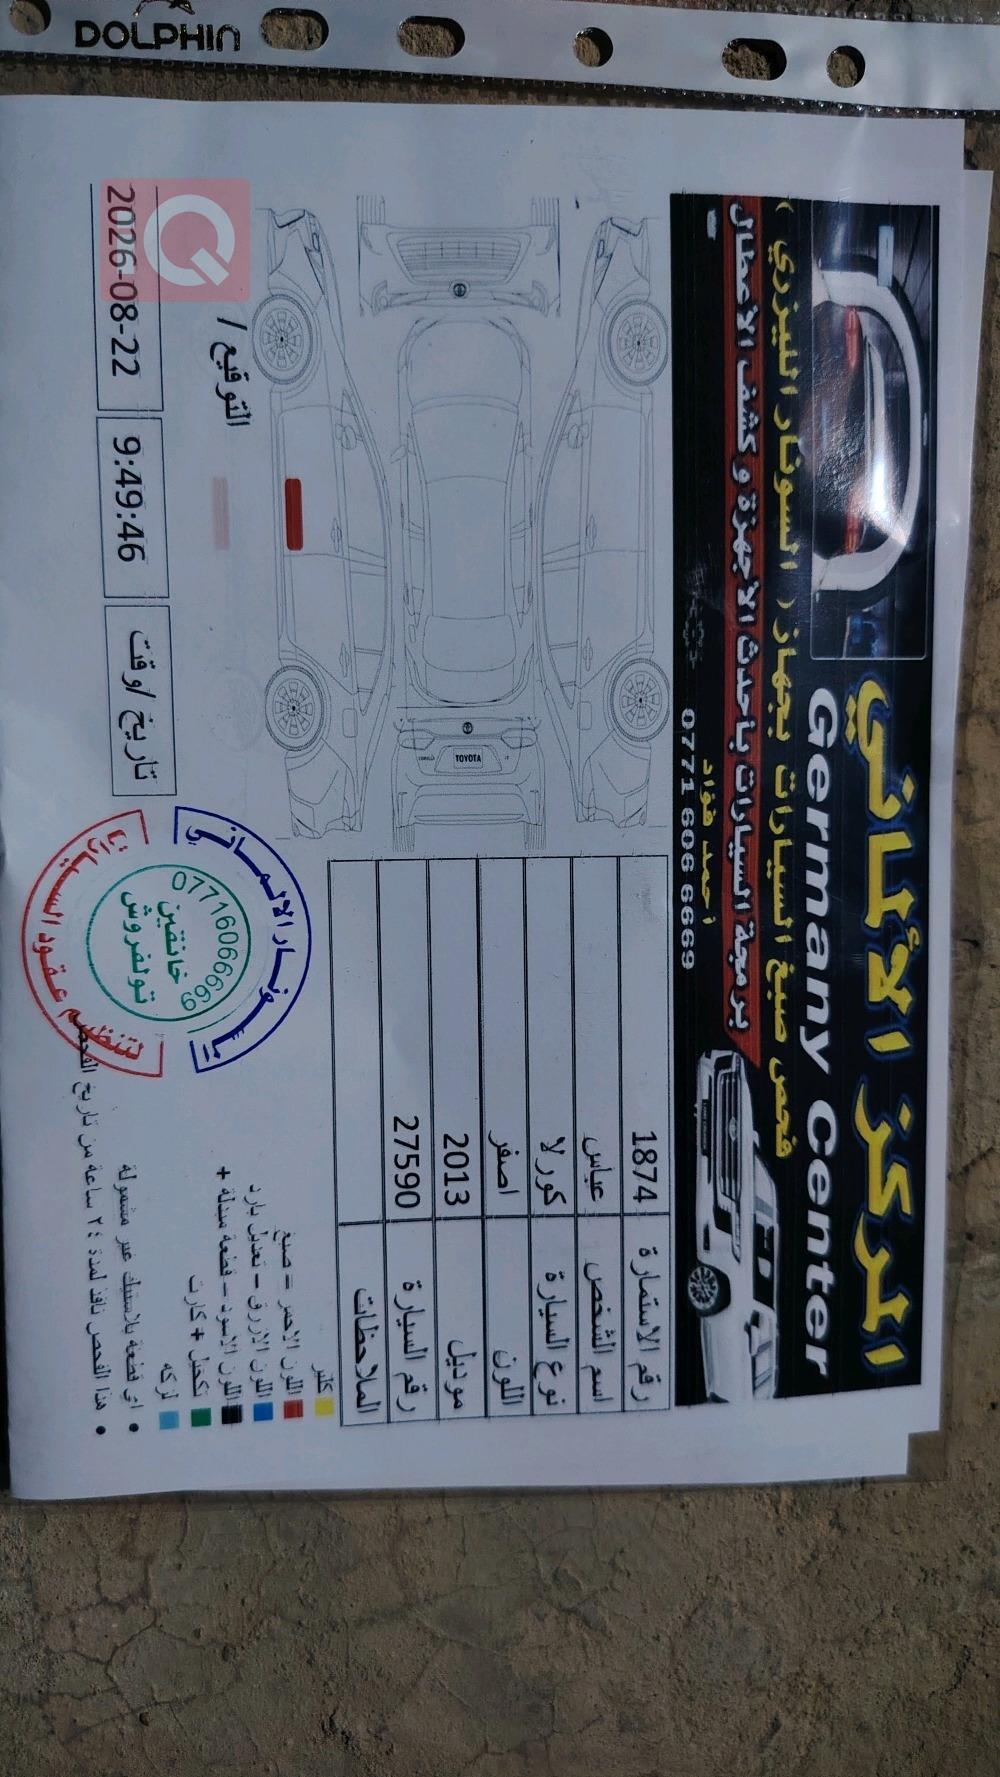 DOLPHIN
المركز الألماني
Germany Center
فحص صبغ السيارات بجهاز ( السونار الليزري )
برمجة السيارات باحدث الاجهزة و كشف الاعطال
احمد فؤاد
0771 606 6669
رقم الاستمارة 1874
اسم الشخص عباس
نوع السيارة كورلا
اللون اصفر
موديل 2013
رقم السيارة 27590
الملاحظات
TOYOTA
كلير
اللون الاحمر = صبغ
اللون الازرق = تعديل بارد
اللون الاسود = قطعة مبدلة +
تكحيل + كارت
لزكه
• اي قطعة بلاستيك غير مشمولة
• هذا الفحص نافذ لمدة ٢٤ ساعة من تاريخ الفحص
التوقيع /
تاريخ /وقت 9:49:46 2026-08-22
لتنظيم عقود السيارات
07716066669
خانقين
تولفروش